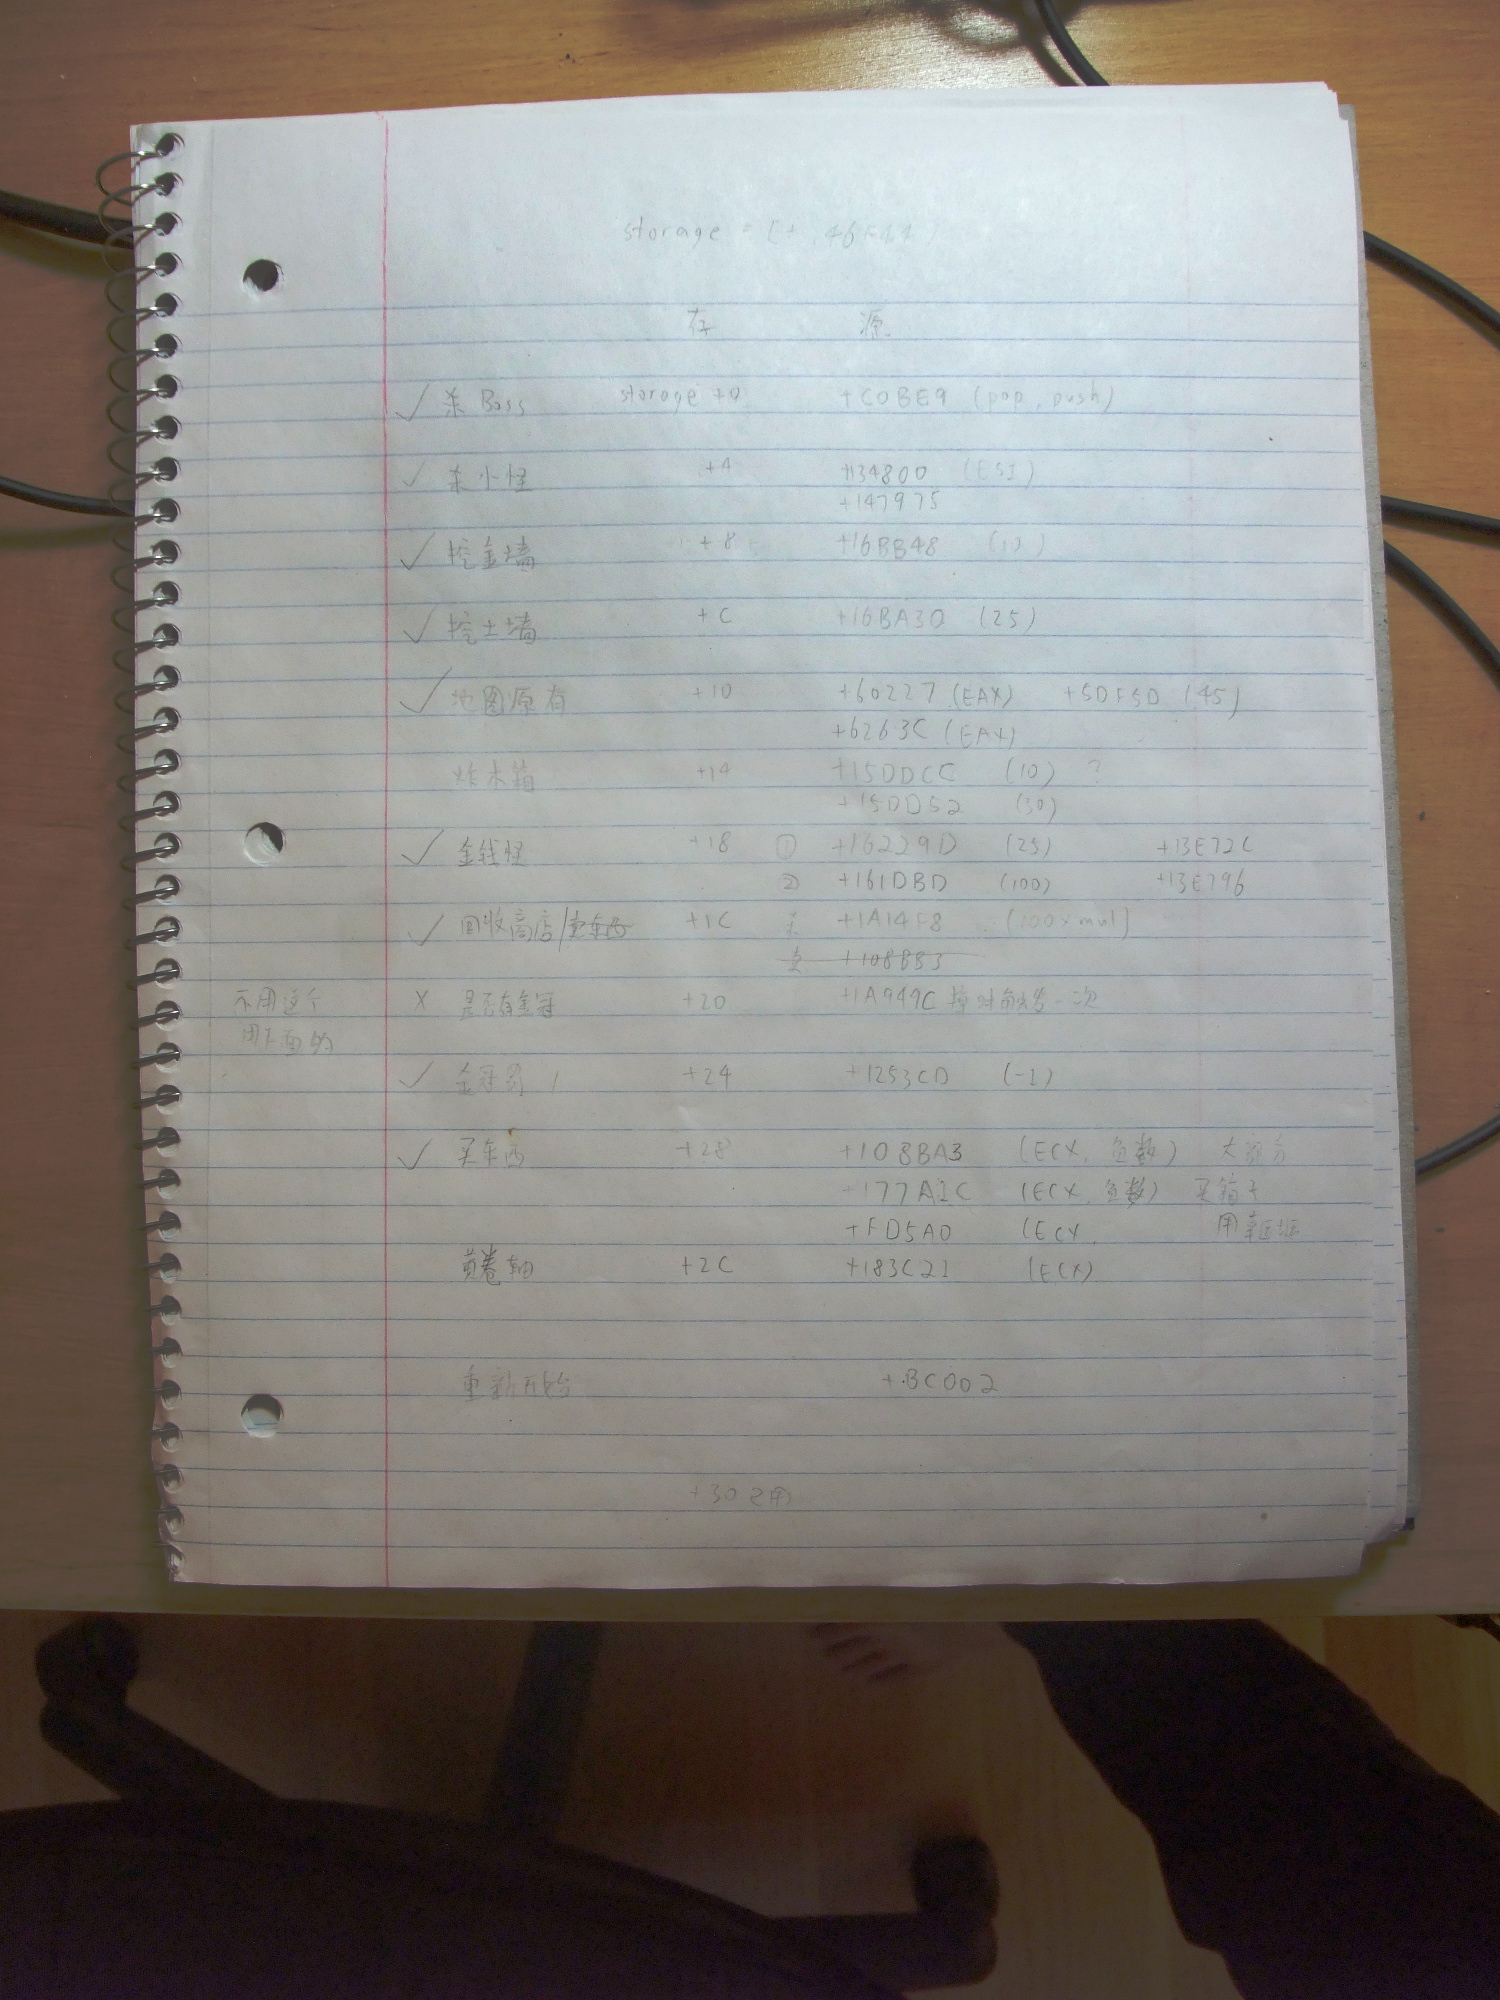 storage =
存 源
✓ 杀 Boss storage +0 +C0BE9 (pop, push)
✓ 杀小怪 +4 +134800 (ESI)
+147975
✓ 挖金墙 +8 +16BB48 (10)
✓ 挖土墙 +C +16BA30 (25)
✓ 地图原有 +10 +60227 (EAX) +5DF5D (45)
+6263C (EAX)
炸木箱 +14 +15DDCC (10) ?
+15DD52 (30)
✓ 金钱怪 +18 ① +16229D (25) +13E72C
② +161DBD (100) +13E796
✓ 回收商店/卖东西 +1C 杀 +1A14F8 (100×mul)
卖 +108BB3
不用这个 X 是否有金冠 +20 +1A949C 掉时触发一次
用下面的
✓ 金冠 +24 +1253CD (-1)
✓ 买东西 +28 +108BA3 (ECX, 负数) 大部分
+177A2C (ECX, 负数) 买箱子
+FD5A0 (ECX, 用
黄卷轴 +2C +183C21 (ECX)
重新开始 +BC002
+30 已用